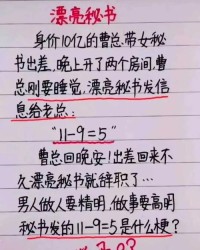 漂亮秘书
身价10亿的曹总.带女秘
书出差,晚上开了两个房间.曹
总刚要睡觉,漂亮秘书发信
息给老总:
"11-9=5"
曹总回晚安!出差回来不
久漂亮秘书就辞职了…
男人做人要精明,做事要高明
秘书发的11-9=5是什么梗?